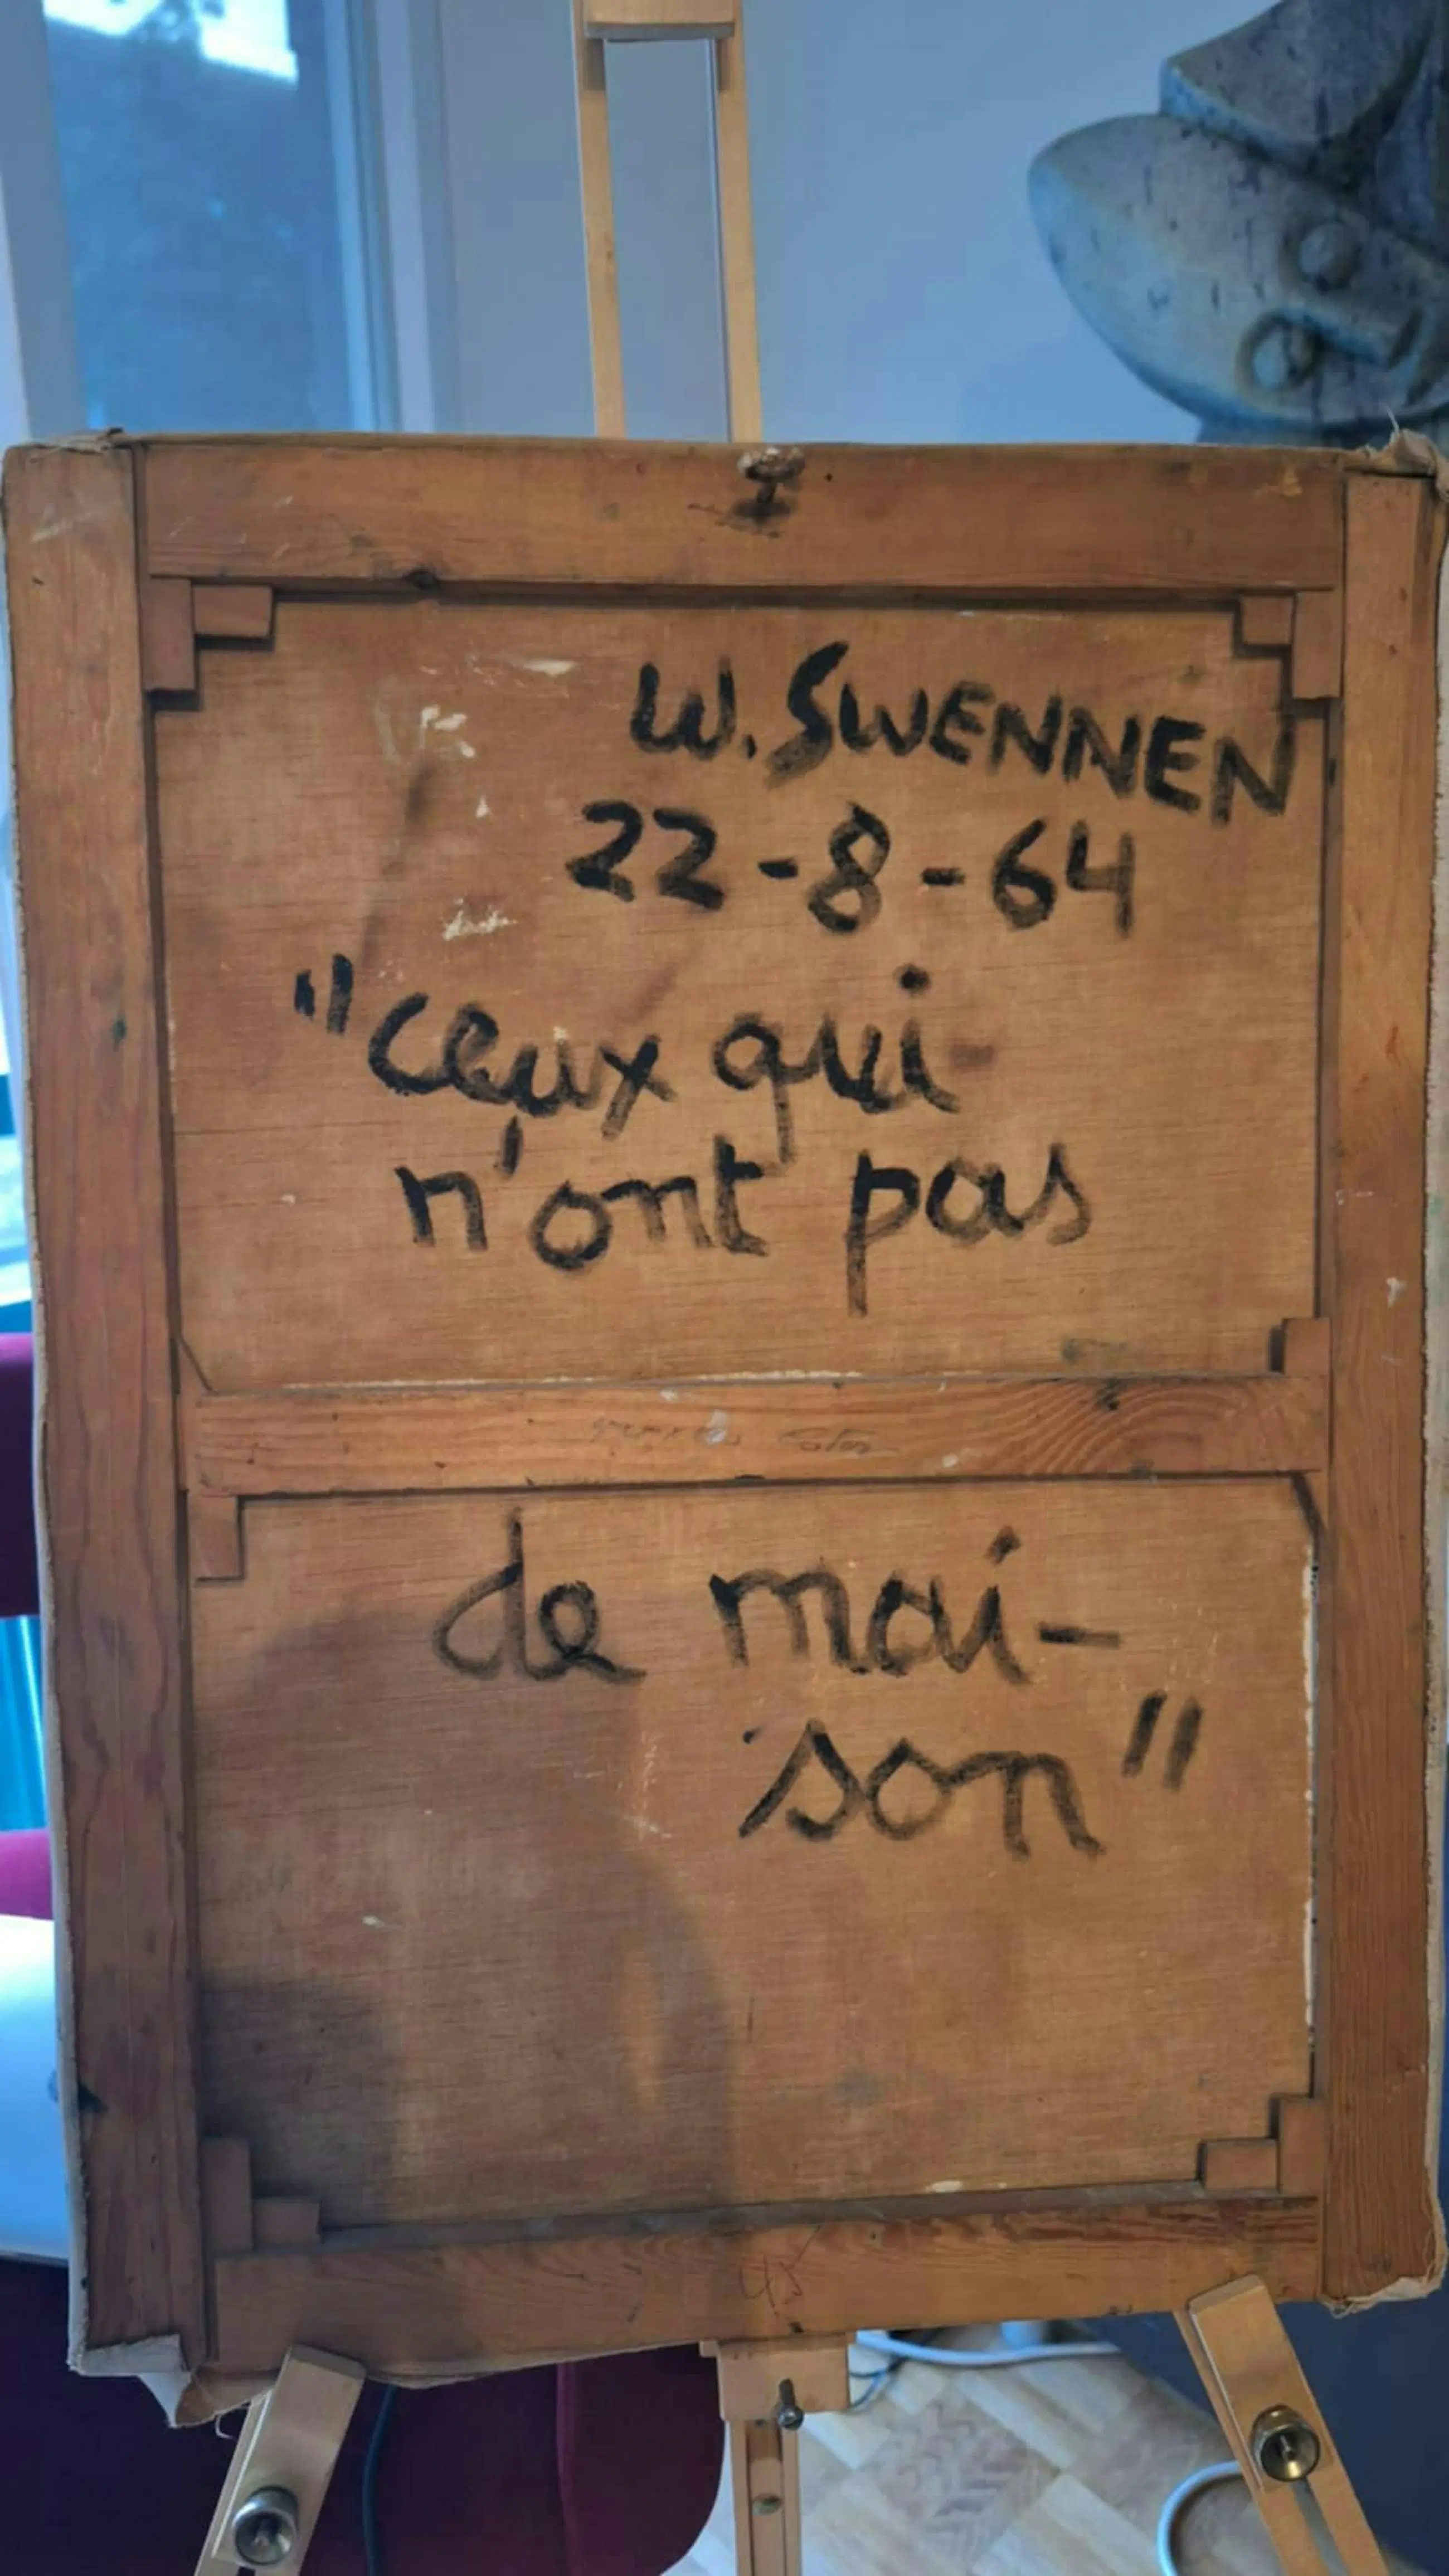 W. SWENNEN
22-8-64
"ceux qui
n'ont pas
de mai-
son"
45